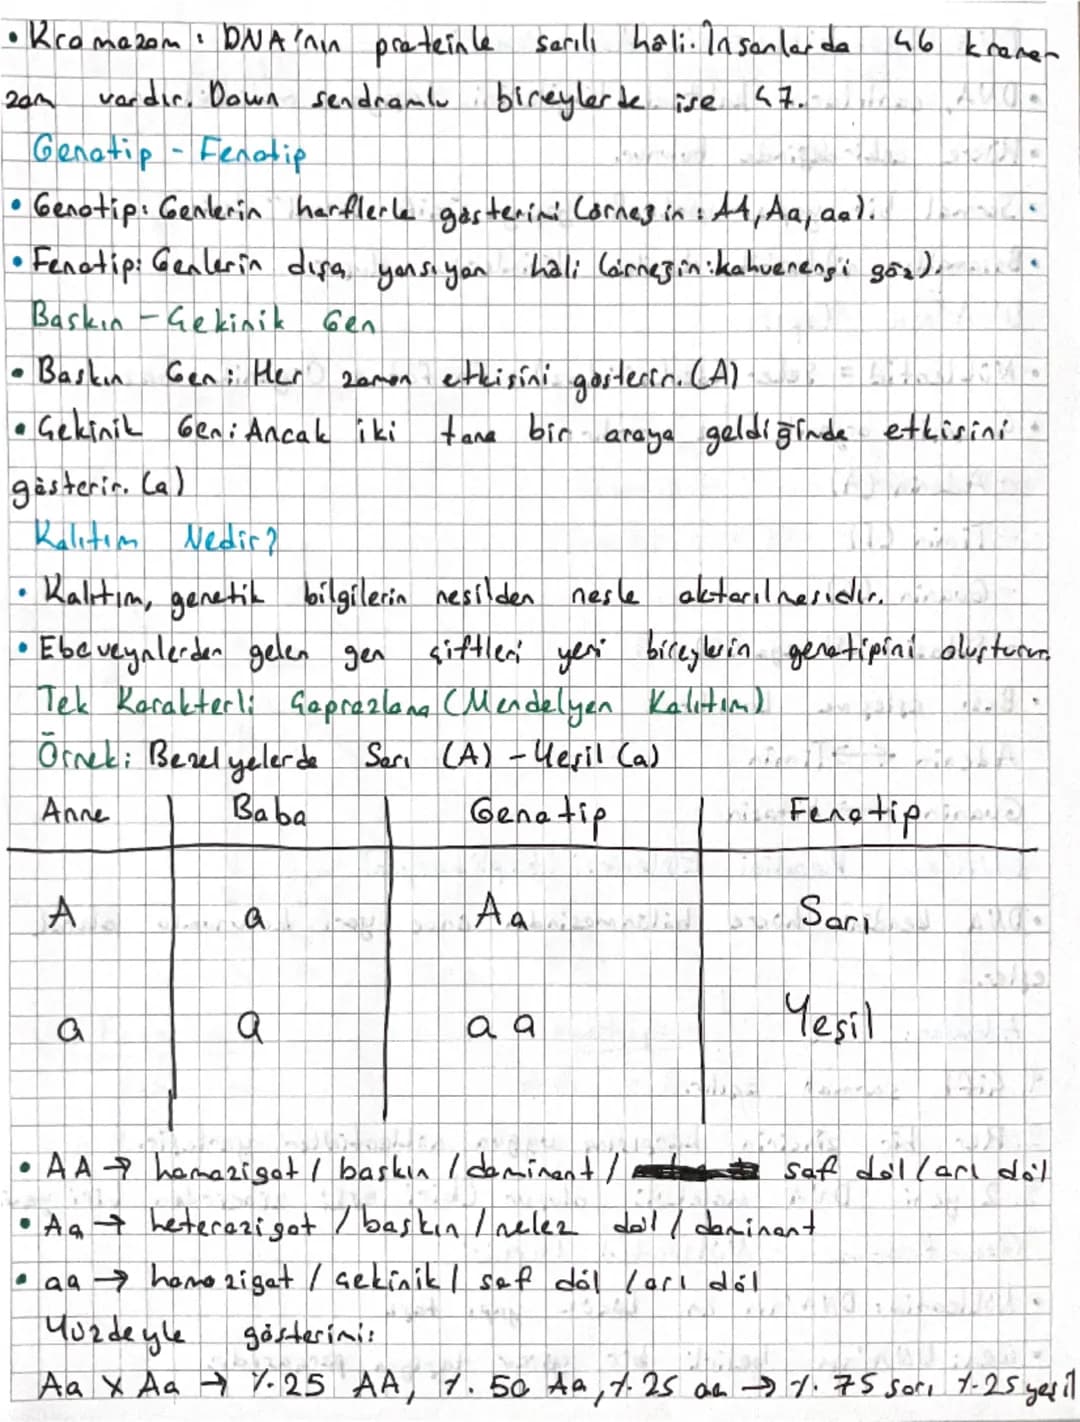 • Kromozom: DNA'nın proteinle sarılı hâli. İnsanlarda 46 kromo-
zom vardır. Down sendromlu bireylerde ise 47.
Genotip - Fenotip
• Genotip: Genlerin harflerle gösterimi (örneğin: AA, Aa, aa).
• Fenotip: Genlerin dışa yansıyan hâli (örneğin: kahverengi göz).
Baskın - Çekinik Gen
• Baskın Gen: Her zaman etkisini gösterir. (A)
• Çekinik Gen: Ancak iki tane bir araya geldiğinde etkisini
gösterir. (a)
Kalıtım Nedir?
• Kalıtım, genetik bilgilerin nesilden nesle aktarılmasıdır.
• Ebeveynlerden gelen gen çiftleri yeni bireylerin genotipini oluşturur.
Tek Karakterli Çaprazlama (Mendelyen Kalıtım)
Örnek: Bezelyelerde Sarı (A) - Yeşil (a)
Anne Baba Genotip Fenotip
A a Aa Sarı
a a aa Yeşil
• AA → homozigot / baskın / dominant / saf döl / arı döl
• Aa → heterozigot / baskın / melez döl / dominant
• aa → homozigot / çekinik / saf döl / arı döl
Yüzdeyle gösterimi:
Aa x Aa → %25 AA, %50 Aa, %25 aa → %75 sarı %25 yeşil